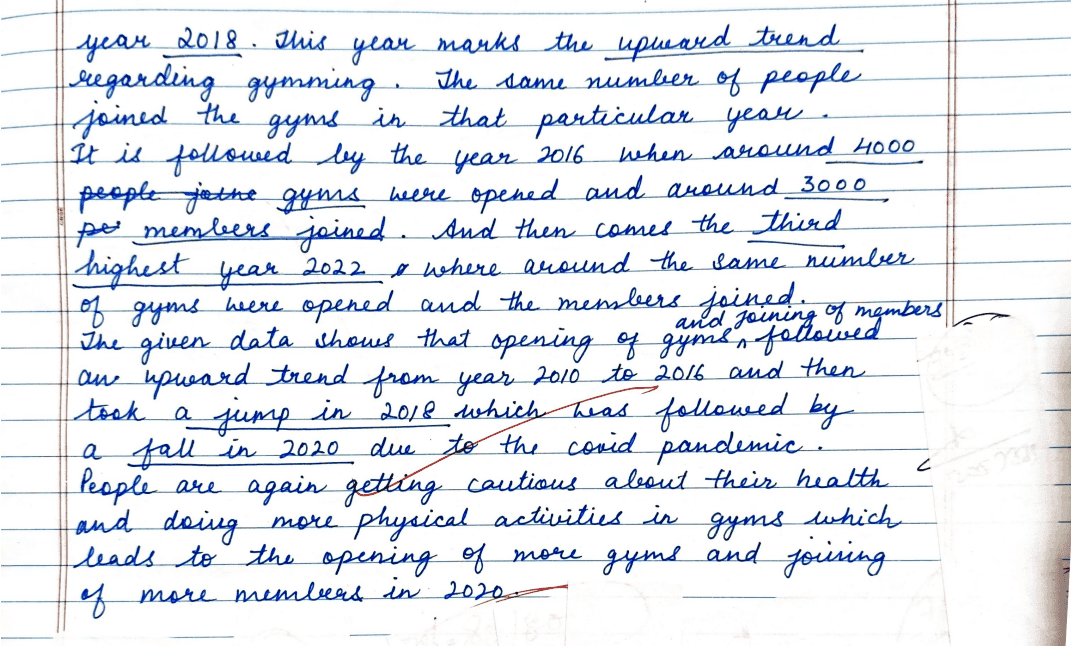 year 2018. This year marks the upward trend
regarding gymming. The same number of people
joined the gyms in that particular year.
It is followed by the year 2016 when around 4000
people joine gyms were opened and around 3000
pe members joined. And then comes the third
highest year 2022 where around the same number
of gyms were opened and the members joined.
and joining of members
The given data shows that opening of gyms ^ followed
an upward trend from year 2010 to 2016 and then
took a jump in 2018 which was followed by
a fall in 2020 due to the covid pandemic.
People are again getting cautious about their health
and doing more physical activities in gyms which
leads to the opening of more gyms and joining
of more members in 2020.